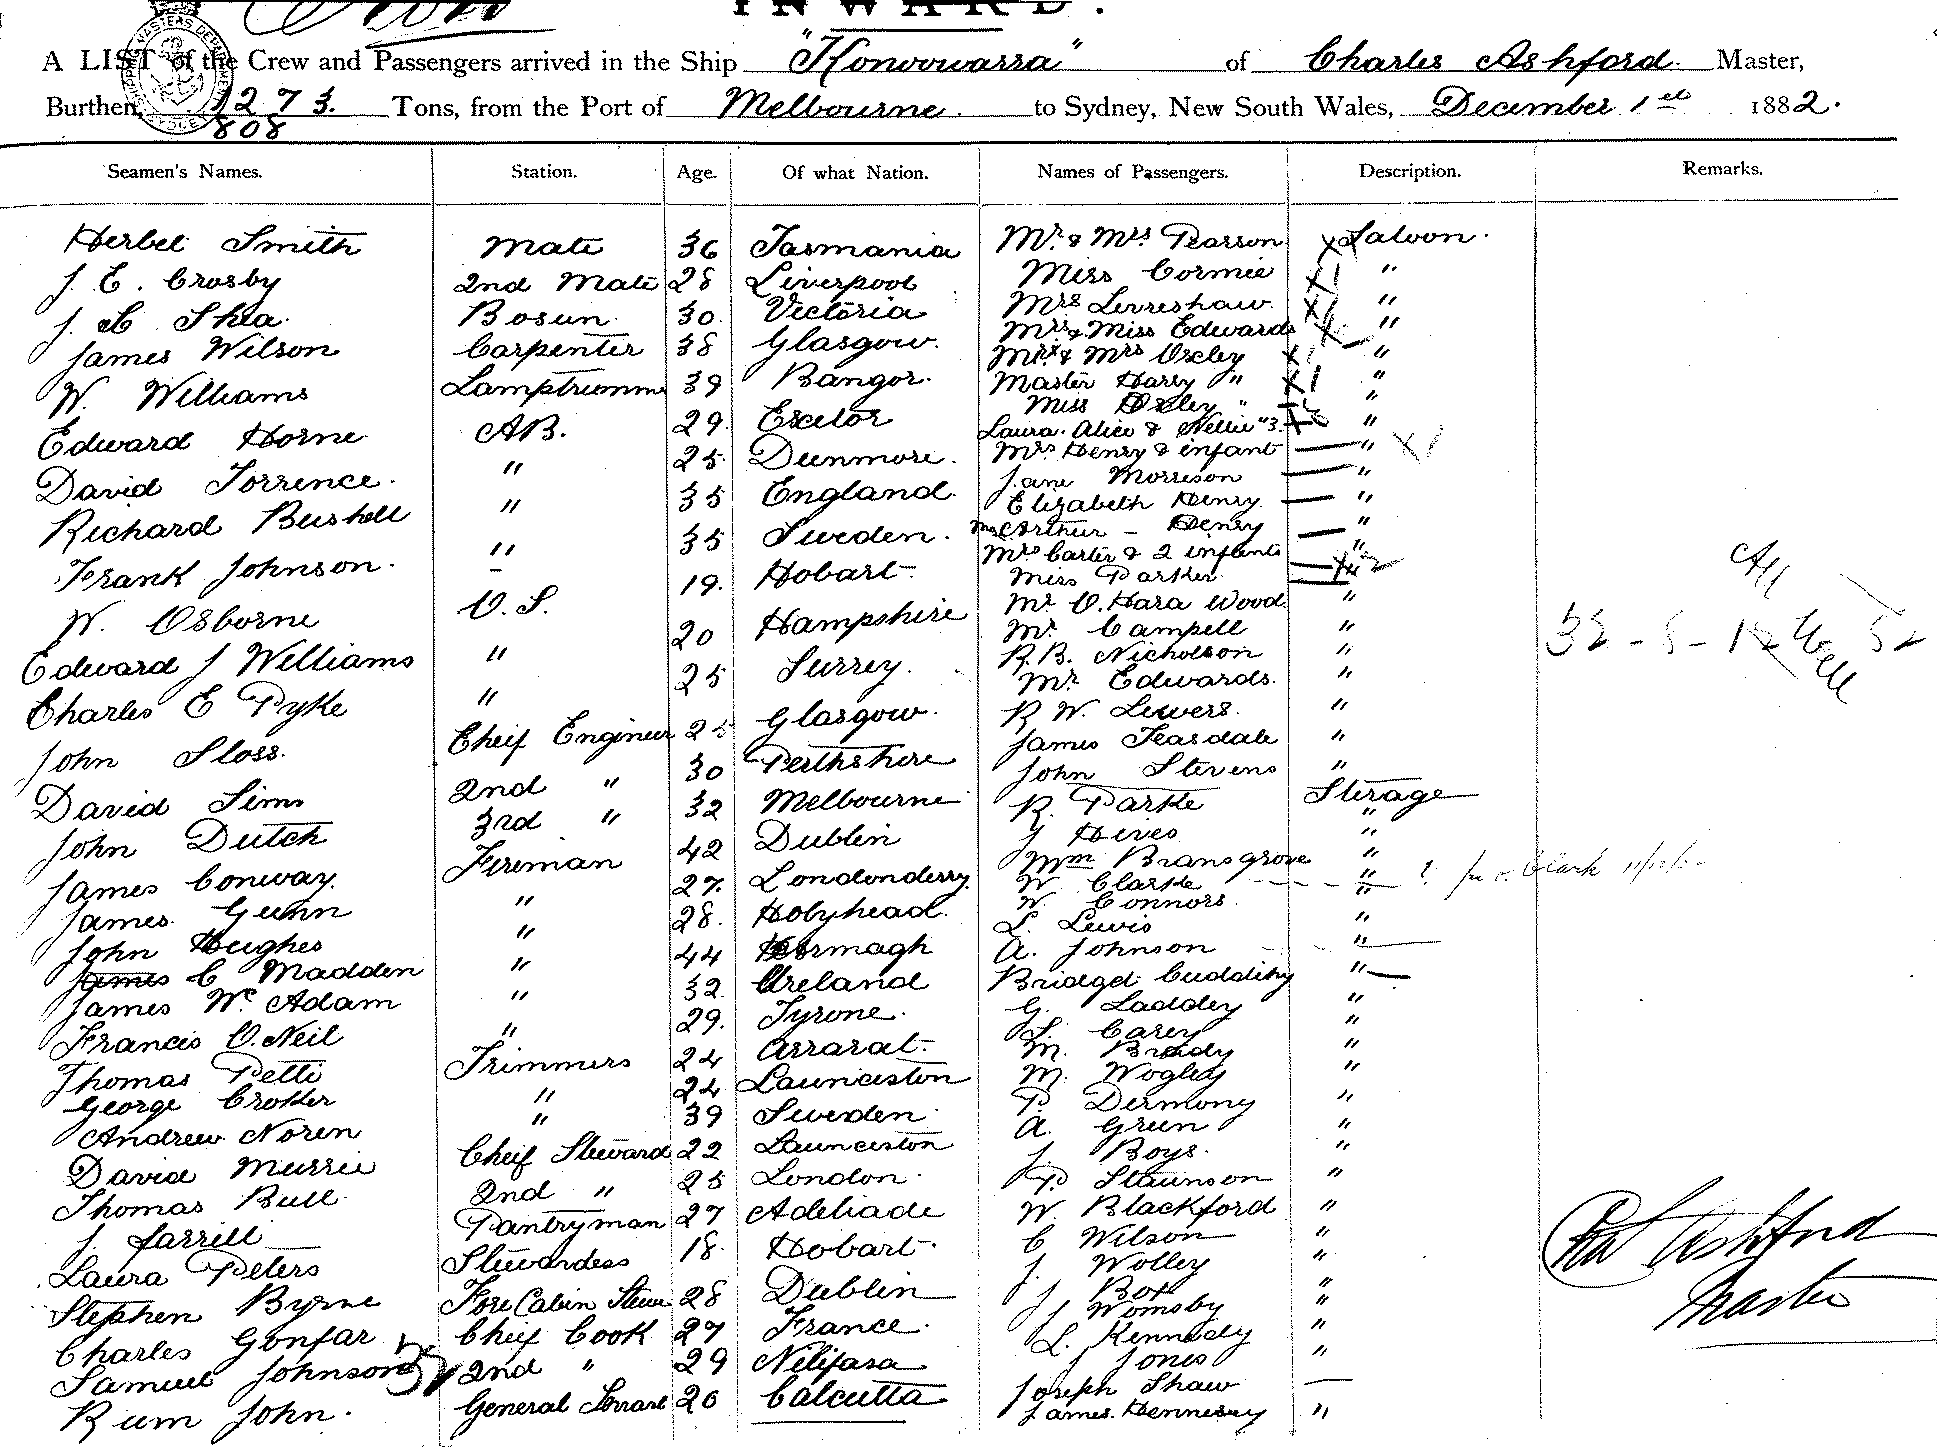 INWARD.
A LIST of the Crew and Passengers arrived in the Ship "Konoowarra" of Charles Ashford Master,
Burthen, 1273 Tons, from the Port of Melbourne to Sydney, New South Wales, December 1st 1882.
808
Seamen's Names. Station. Age. Of what Nation. Names of Passengers. Description. Remarks.
Herbet Smith Mate 36 Tasmania Mr. & Mrs Pearson Saloon.
J. E. Crosby 2nd Mate 28 Liverpool Miss Cormie "
J. Shea Bosun 30 Victoria Mrs "
James Wilson Carpenter 38 Glasgow. Mrs & Miss Edwards "
W. Williams 39 Bangor. Mr & Mrs Oxley "
Edward Horne A.B. 29 Exeter Master Harry " "
David Torrence " 25 Dunmore. Miss Oxley " "
Richard Bushell " 35 England. Laura. Alice & Nellie " 3. "
Frank Johnson. " 35 Sweden. Mrs Henry & infant "
W. Osborne O.S. 19. Hobart. Jane Morrison "
Edward J Williams " 20 Hampshire Elizabeth Henry "
Charles E Pyke " 25 Surrey. Arthur - Henry "
John Sloss. Cheif Engineer 25 Glasgow. Mrs Carter & 2 infants "
David Sims 2nd " 30 Perthshire Miss Parker
John Dutch 3rd " 32 Melbourne Mr O.Hara Wood "
James Conway. Fireman 42 Dublin Mr. Campell "
James Gunn " 27. Londonderry R.B. Nicholson "
John Hughes " 28. Holyhead. Mr Edwards. "
James C Madden " 44 R W. Lewers. "
James Mc Adam " 32 Ireland James Teasdale "
Francis O.Neil " 29. Tyrone. John Stevens "
Thomas Petti Trimmers 24 Ararat. R. Parke Sterage
George Croker " 24 Launceston J Hives "
Andrew Noren " 39 Sweden Wm Bransgrove "
David Murrie Cheif Steward 22 Launceston W. Clarke " ? Clark
Thomas Bull 2nd " 25 London. W. Connors. "
J. Farrill Pantryman 27 Adeliade L. Lewis "
Laura Peters Stewardess 18. Hobart. A. Johnson "
Stephen Byrne Fore Cabin Stew 28 Dublin Bridget Cuddihy "
Charles Gonfar Cheif Cook 27 France. G. Laddey "
Samuel Johnson 2nd " 29 L. Carey "
Rum John. General 20 Calcutta M. Brady "
M. Wogley "
P. Dermony "
A. Green "
J. Boys. "
P. Staunson "
W. Blackford "
C Wilson "
J. Wolley "
J Box "
J Womsby "
L. Kennedy "
J Jones "
Joseph Shaw
James Hennesey "
All
Well
Ashford
Master